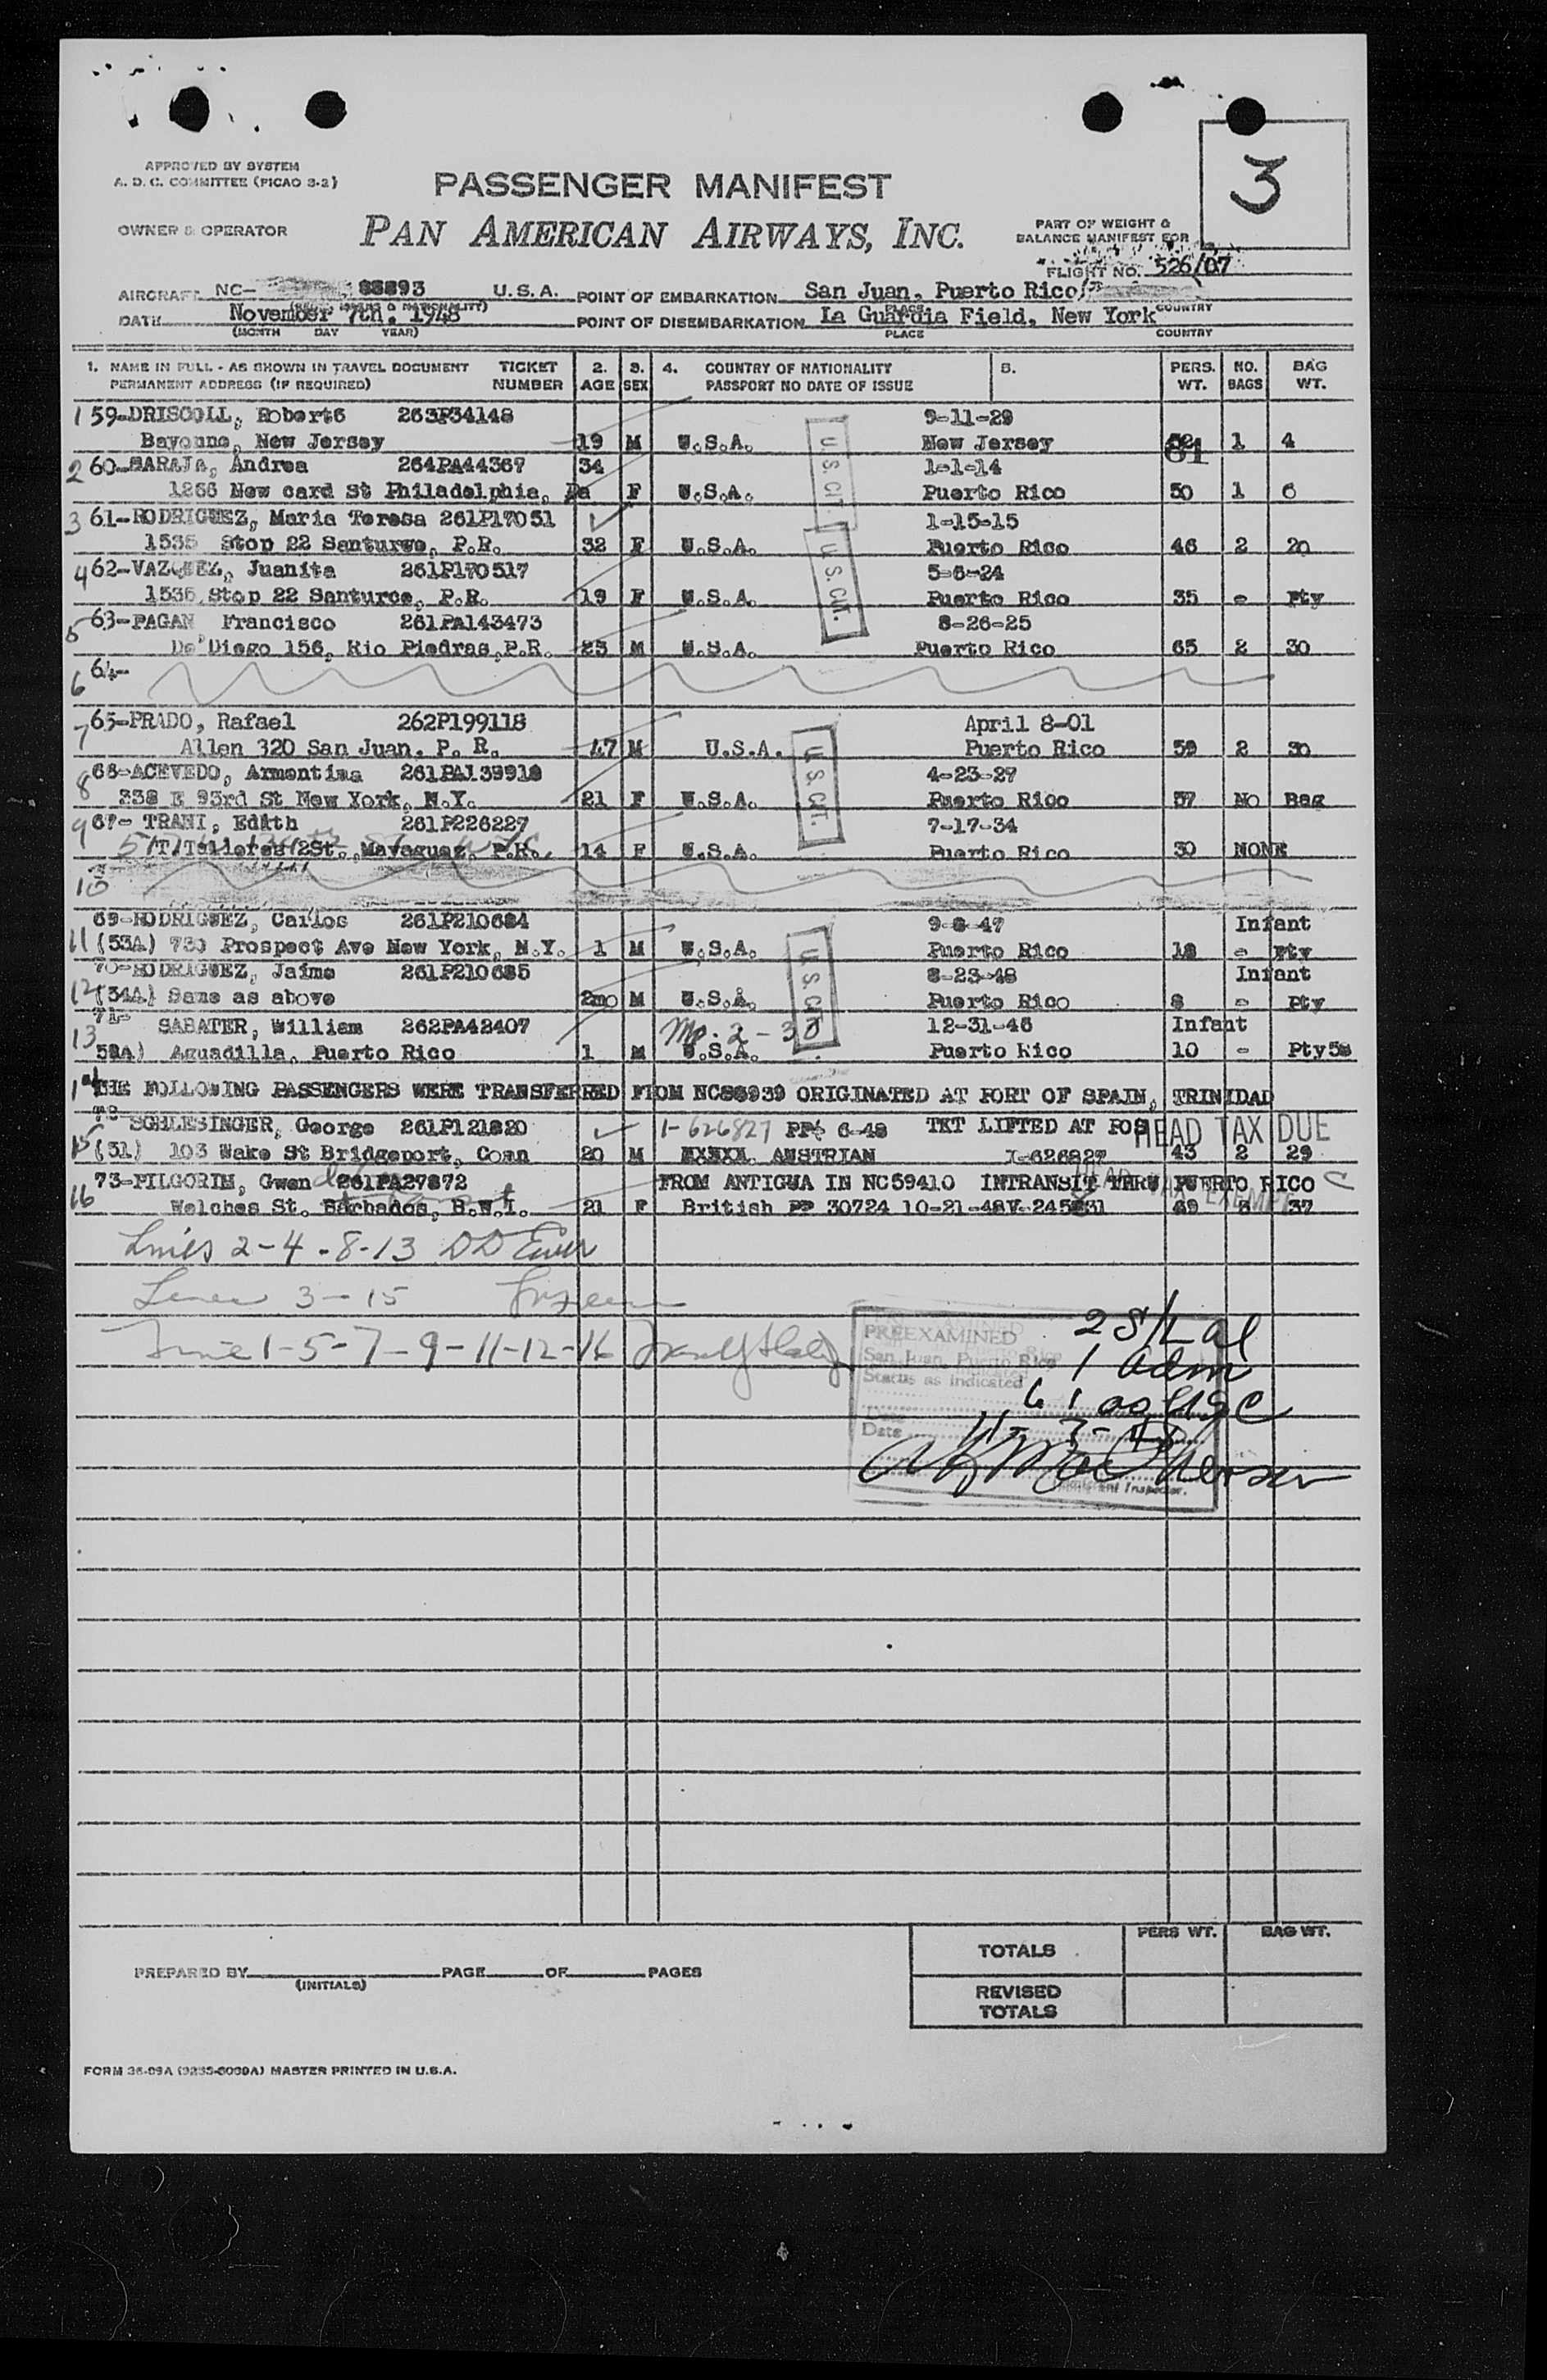 3
APPROVED BY SYSTEM
A. D. C. COMMITTEE (PICAO S-2)
PASSENGER MANIFEST
OWNER & OPERATOR
PAN AMERICAN AIRWAYS, INC.
PART OF WEIGHT &
BALANCE MANIFEST FOR
FLIGHT NO. 526/07
AIRCRAFT NC- 88893 U.S.A. POINT OF EMBARKATION San Juan, Puerto Rico
DATE November 7th, 1948 POINT OF DISEMBARKATION La Guardia Field, New York COUNTRY
(MONTH DAY YEAR) PLACE COUNTRY
1. NAME IN FULL - AS SHOWN IN TRAVEL DOCUMENT TICKET 2. 3. 4. COUNTRY OF NATIONALITY 5. PERS. NO. BAG
PERMANENT ADDRESS (IF REQUIRED) NUMBER AGE SEX PASSPORT NO DATE OF ISSUE WT. BAGS WT.
1 59-DRISCOLL, Robert6 263P34148 9-11-29
Bayonne, New Jersey 19 M U.S.A. New Jersey 61 1 4
2 60- Andrea 264PA44367 34 1-1-14
1256 New card St Philadelphia, Pa F U.S.A. Puerto Rico 50 1 6
3 61-RODRIGUEZ, Maria Teresa 261P17051 1-15-15
1535 Stop 22 Santurwe, P.R. 32 F U.S.A. Puerto Rico 46 2 20
4 62-VAZQUEZ, Juanita 261P170517 5-6-24
1536 Stop 22 Santurce, P.R. 19 F U.S.A. Puerto Rico 35 - Pty
5 63-PAGAN Francisco 261PA143473 8-26-25
De Diego 156, Rio Piedras, P.R. 23 M U.S.A. Puerto Rico 65 2 30
U.S. CIT. U.S. CIT.
6 64-
7 65-PRADO, Rafael 262P199118 April 8-01
Allen 320 San Juan, P. R. 47 M U.S.A. Puerto Rico 59 2 30
8 66-ACEVEDO, Armentina 261PA139918 4-23-27
338 E 93rd St New York, N.Y. 21 F U.S.A. Puerto Rico 57 No Bag
9 67- TRANI, Edith 261P226227 7-17-34
St. Mayaguez, P.R. 14 F U.S.A. Puerto Rico 30 NONE
U.S. CIT.
10
69-RODRIGUEZ, Carlos 261P210684 9-8-47 Infant
11 (53A) 730 Prospect Ave New York, N.Y. 1 M U.S.A. Puerto Rico 18 - Pty
70-RODRIGUEZ, Jaime 261P210685 8-23-48 Infant
12 (34A) Same as above 2mo M U.S.A. Puerto Rico 8 - Pty
SABATER, William 262PA42407 12-31-46 Infant
13 58A) Aguadilla, Puerto Rico 1 M U.S.A. Puerto Rico 10 - Pty58
U.S. CIT.
THE FOLLOWING PASSENGERS WERE TRANSFERRED FROM NC88939 ORIGINATED AT PORT OF SPAIN, TRINIDAD
SCHLESINGER, George 261P121820 1-626827 PP 6-48 TKT LIFTED AT POS HEAD TAX DUE
15 (31) 103 Wake St Bridgeport, Conn 20 M AUSTRIAN I-626827 43 2 29
73-PILGORIM, Gwen 261PA27872 FROM ANTIGUA IN NC59410 INTRANSIT THRU PUERTO RICO
16 Welches St. Barbados, B.W.I. 21 F British PP 30724 10-21-48 69 37
HEAD TAX EXEMPT
Lines 2-4-8-13
Lines 3-15
Line 1-5-7-9-11-12-16
PREEXAMINED
San Juan, Puerto Rico
Status as indicated
Date
Immigrant Inspector.
1 adm
TOTALS PERS WT. BAG WT.
REVISED
TOTALS
PREPARED BY (INITIALS) PAGE OF PAGES
FORM 36-09A (9235-6009A) MASTER PRINTED IN U.S.A.